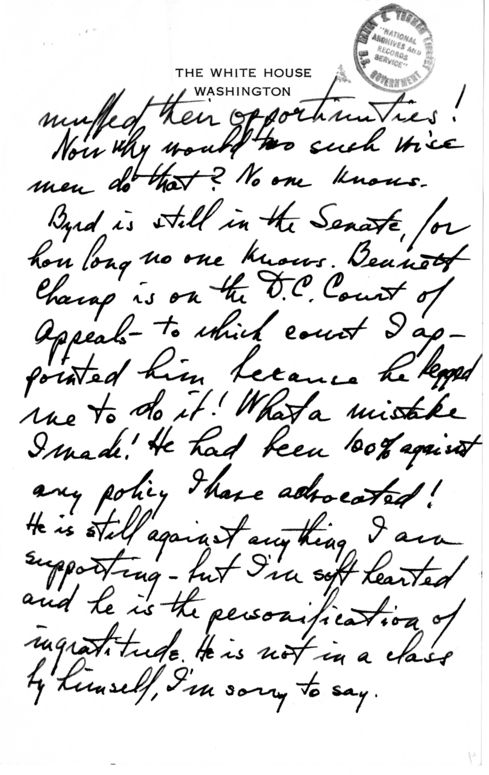 HARRY S. TRUMAN LIBRARY
"NATIONAL
ARCHIVES AND
RECORDS
SERVICE"
U.S. GOVERNMENT
THE WHITE HOUSE
WASHINGTON
muffed their opportunities!
Now why would two such wise
men do that? No one knows.
Byrd is still in the Senate, for
how long no one knows. Bennett
Champ is on the D.C. Court of
Appeals - to which court I ap-
pointed him because he begged
me to do it! What a mistake
I made! He had been 100% against
any policy I have advocated!
He is still against anything I am
supporting - but I'm soft hearted
and he is the personification of
ingratitude. He is not in a class
by himself, I'm sorry to say.